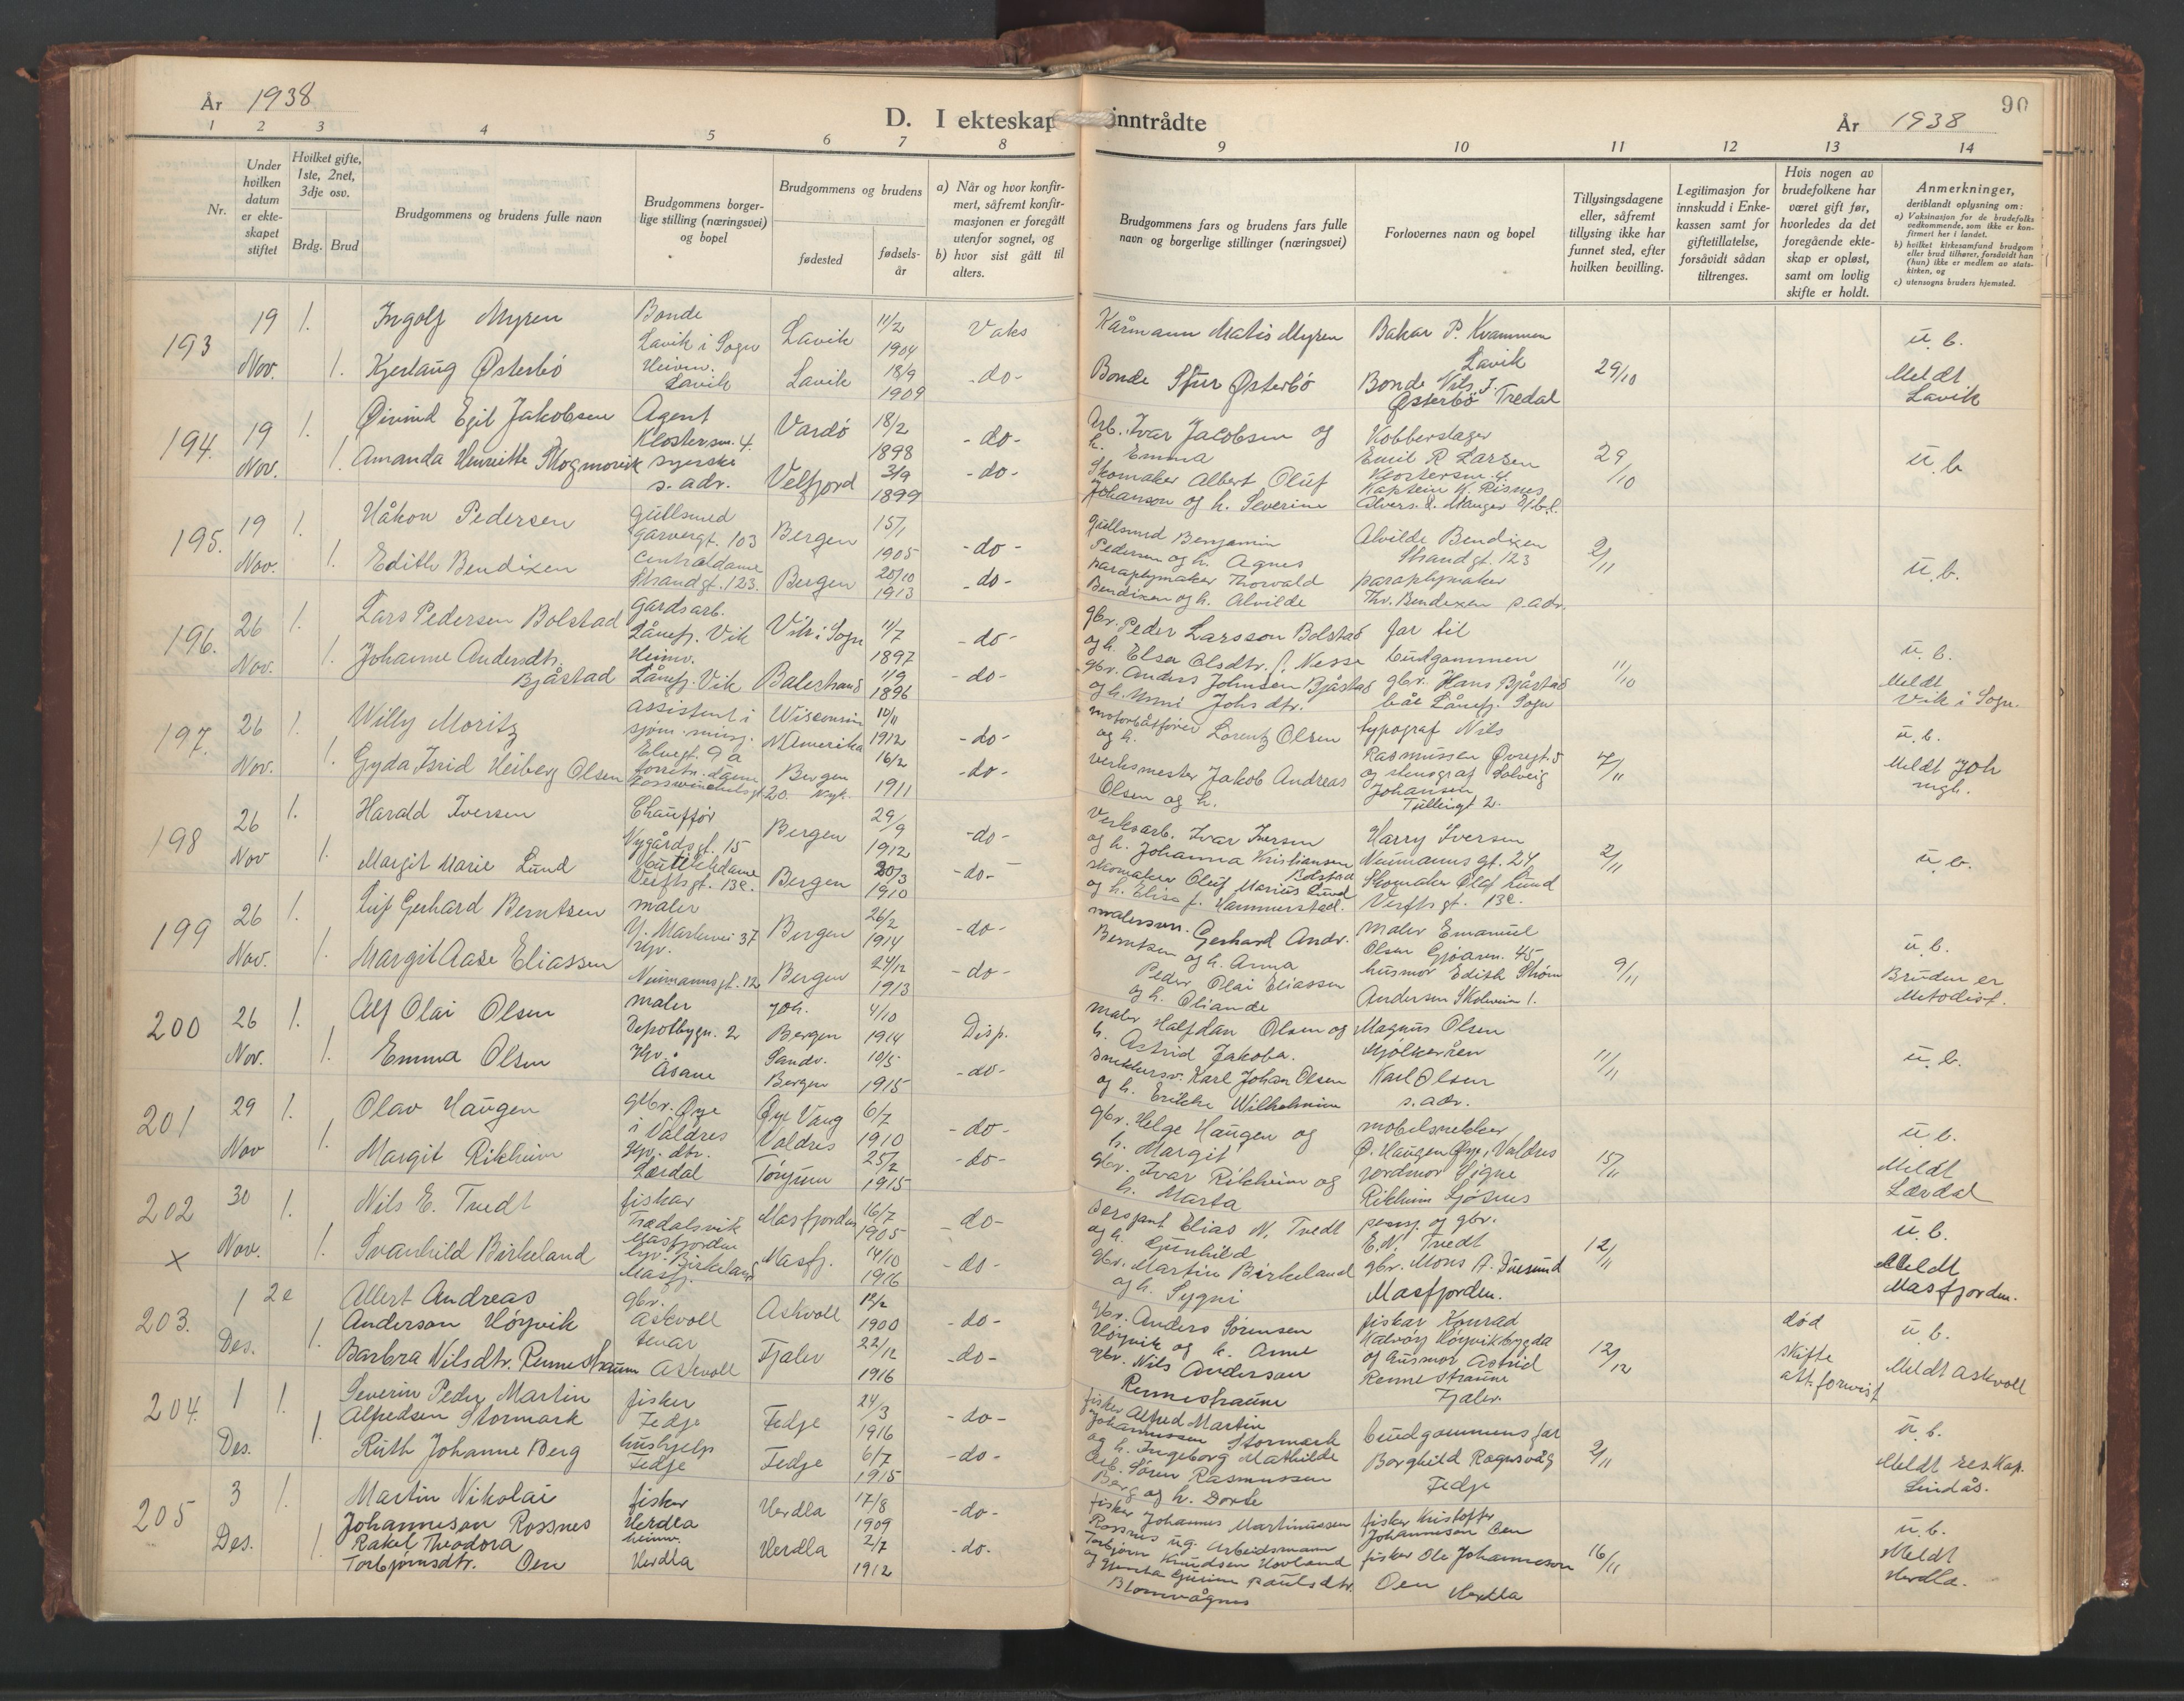 År 1938
D. I ekteskap inntrådte
År 1938
90
1 2 3 4 5 6 7 8 9 10 11 12 13 14
Nr.
Under hvilken datum er ekteskapet stiftet
Hvilket gifte, 1ste, 2net, 3dje osv.
Brdg. Brud
Brudgommens og brudens fulle navn
Brudgommens borgerlige stilling (næringsvei) og bopel
Brudgommens og brudens
fødested
fødselsår
a) Når og hvor konfirmert, såfremt konfirmasjonen er foregått utenfor sognet, og
b) hvor sist gått til alters.
Brudgommens fars og brudens fars fulle navn og borgerlige stillinger (næringsvei)
Forlovernes navn og bopel
Tillysingsdagene eller, såfremt tillysing ikke har funnet sted, efter hvilken bevilling.
Legitimasjon for innskudd i Enkekassen samt for giftetillatelse, forsåvidt sådan tiltrenges.
Hvis nogen av brudefolkene har været gift før, hvorledes da det foregående ekteskap er opløst, samt om lovlig skifte er holdt.
Anmerkninger, deriblandt oplysning om:
a) Vaksinasjon for de brudefolks vedkommende, som ikke er konfirmert her i landet.
b) hvilket kirkesamfund brudgom eller brud tilhører, forsåvidt han (hun) ikke er medlem av statskirken, og
c) utensogns bruders hjemsted.
193 19 Nov. 1. 1.
Ingolf Myren Bonde Lavik i Sogn Lavik 11/2 1904 Vaks
Kjerlaug Østerbö Heimv. Lavik Lavik 18/9 1909 -do-
Kårmann Matis Myren
Bonde Sjur Østerbö
Bakar P. Kvammen Lavik
Bonde Nils J. Østerbö Tredal
29/10
u. b.
Meldt Lavik
194. 19 Nov. 1. 1.
Øivind Egil Jakobsen Agent Klostersm. 4. Vardö 18/2 1898 -do-
Amanda Henriette Skogmorvik syerske s. adr. Velfjord 3/9 1899 -do-
Arb. Ivar Jacobsen og h. Emma
Skomaker Albert Oluf Johanson og h. Severine
Kobberslager Emil R Larsen Klostersm 4.
Kaptein K. Risnes
29/10
u. b
195. 19 Nov. 1. 1.
Håkon Pedersen gullsmed garvergt. 103 Bergen 15/1 1905 -do-
Edith Bendixen centraldame Strandgt. 123. Bergen 20/10 1913 -do-
gullsmed Benjamin Pedersen og h. Agnes
paraplymaker Thorvald Bendixen og h. Alvilde
Alvilde Bendixen Strandgt. 123
paraplymaker Thv. Bendixen s. adr.
2/11
u. b.
196. 26 Nov. 1. 1.
Lars Pedersen Bolstad gardsarb. Lånefj. Vik Vik i Sogn 11/7 1897 -do-
Johanne Andersdtr. Bjåstad Heimv. Lånefj. Vik Balestrand 1/9 1896 -do-
gbr. Peder Larsson Bolstad og h. Elsa Olsdtr. f. Nesse
gbr. Anders Johnsen Bjåstad og h. Unni Johs dtr.
far til brudgommen
gbr. Hans Bjåstad båe Lånefj. Sogn
11/10
u. b.
Meldt Vik i Sogn.
197. 26 Nov. 1. 1.
Willy Moritz assistent i sjøm. misj. Elvegt. 9 a Wisconsin N Amerika 10/11 1912 -do-
Gyda Isrid Heiberg Olsen forretn. dame 20. Nyk. Bergen 16/2 1911 -do-
motorbåtfører Lorentz Olsen og h.
verksmester Jakob Andreas Olsen og h.
typograf Nils Rasmussen Øvregt. 5
og stenograf Solveig Johansen Tullingt 2.
7/11
u. b.
Meldt Joh mgh.
198 26 Nov 1. 1.
Harald Iversen Chauffør Nygårdsgt. 15 Bergen 29/9 1912 -do-
Margit Marie Lund butikkdame Verftsgt. 13c. Bergen 30/3 1910 -do-
Verksarb. Ivar Iversen og h. Johanna Kristiansen Bolstad
skomaker Oluf Marius Lund og h. Elise f. Hammerstad.
Harry Iversen Neumanns gt. 24,
Skomaker Olaf Lund Verfts gt. 13c.
2/11
u. b.
199 26 Nov. 1. 1.
Leif Gerhard Berntsen maler Y. Markevei 37 Bergen 26/2 1914 -do-
Margit Aase Eliassen Hjv. Neumannsgt. 12 Bergen 24/12 1913 -do-
malersvn. Gerhard Andr. Berntsen og h. Anna
Peder Olai Eliassen og h. Oliande
maler Emanuel Olsen Gjøarm. 45
husmor Edith Strøm Andersen Skolevien 1.
9/11
u. b.
Bruden er Metodist.
200 26 Nov. 1. 1.
Alf Olai Olsen maler Depotbygn. 2 Joh. Bergen 4/10 1914 Disp.
Emma Olsen Hjv. Åsane Sandv. Bergen 10/5 1915 -do-
maler Halfdan Olsen og h. Astrid Jakoba.
snekkersv. Karl Johan Olsen og h. Erikke Wilhelmine
Magnus Olsen Mjölkeråen
Karl Olsen s. adr.
11/11
u. b.
201 29 Nov 1. 1.
Olav Haugen gbr. Øye i Valdres Øye Vang Valdres 6/7 1910 -do-
Margit Rikheim Hjv. dtr. Lærdal Tönjum 25/2 1915 -do-
gbr. Helge Haugen og h. Margit
gbr. Ivar Rikheim og h. Marta
mobelsnekker Ø. Haugen Øye, Valdres
jordmor Signe Rikheim Sjøsnes
15/11
u. b.
Meldt Lærdal
202 × 30 Nov. 1. 1.
Nils E. Tvedt fiskar Trædalsvik Masfjorden Masfjorden 16/7 1905 -do-
Svanhild Birkeland hjv. Birkeland Masfj. Masfj. 14/10 1916 -do-
sersjant Elias N. Tvedt og h. Gunhild
gbr. Martin Birkeland og h. Sygni
pensj. og gbr. E. N. Tvedt
gbr. Mons A. Duesund Masfjorden.
12/11
u. b.
Meldt Masfjorden.
203. 1 Des. 2e 1.
Allert Andreas Anderson Höyvik gbr. Askvoll Askvoll 12/2 1900 -do-
Barbra Nilsdtr. Rennestraum tenar Askvoll Fjaler 22/12 1916 -do-
gbr. Anders Sörensen Höyvik og h. Anne
gbr. Nils Anderson Rennestraum
fiskar Konrad Kalvöy Höyvikbygda
og husmor Astrid Rennestraum Fjaler.
12/12
död skifte att. forvist
u. b.
Meldt Askvoll
204. 1 Des. 1. 1.
Severin Peder Martin Alfredsen Stormark fisker Fedje Fedje 24/3 1916 -do-
Ruth Johanne Berg hushjelp Fedje Fedje 6/7 1915 -do-
fisker Alfred Martin Johannessen Stormark og h. Ingeborg Mathilde
Arb. Sören Rasmussen Berg og h. Dorte
brudgommens far
Borghild Rognsvåg Fedje
2/11
u. b.
Meldt res. Kap. Lindås.
205 3 Des. 1. 1.
Martin Nikolai Johanneson Rossnes fisker Herdla Herdla 17/8 1909 -do-
Rakel Theodora Torbjørnsdtr. Oen heimv. Herdla Herdla 2/7 1912 -do-
fisker Johannes Martinussen Rossnes ug. Arbeidsmann
Torbjørn Knudsen Hovland og Gurine Paulsdtr. Blomvågnes
fisker Kristoffer Johannesen Oen
fisker Ole Johanneson Oen Herdla
16/11
u. b.
Meldt Herdla.